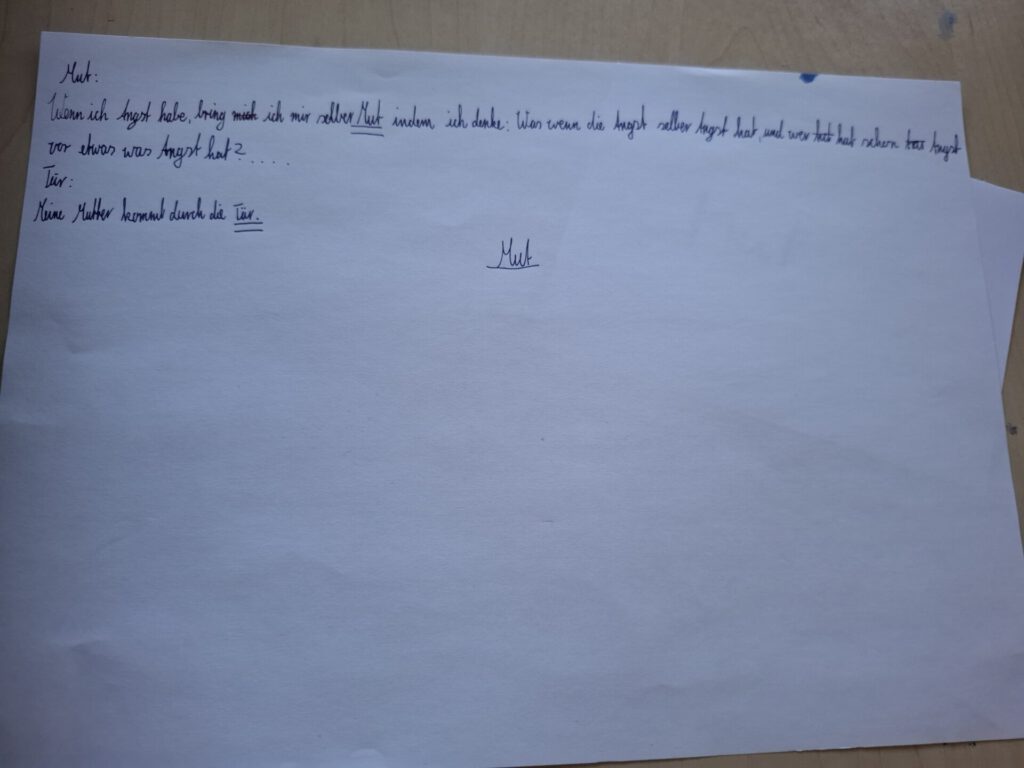 Mut:
Wenn ich Angst habe, bring mich ich mir selber Mut indem ich denke: Was wenn die Angst selber Angst hat, und wer hat hat schon Angst
vor etwas was Angst hat?....
Tür:
Meine Mutter kommt durch die Tür.
Mut